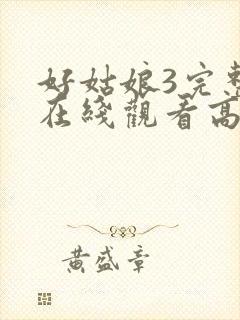 好姑娘3完整
在綫觀看高
黄盛章